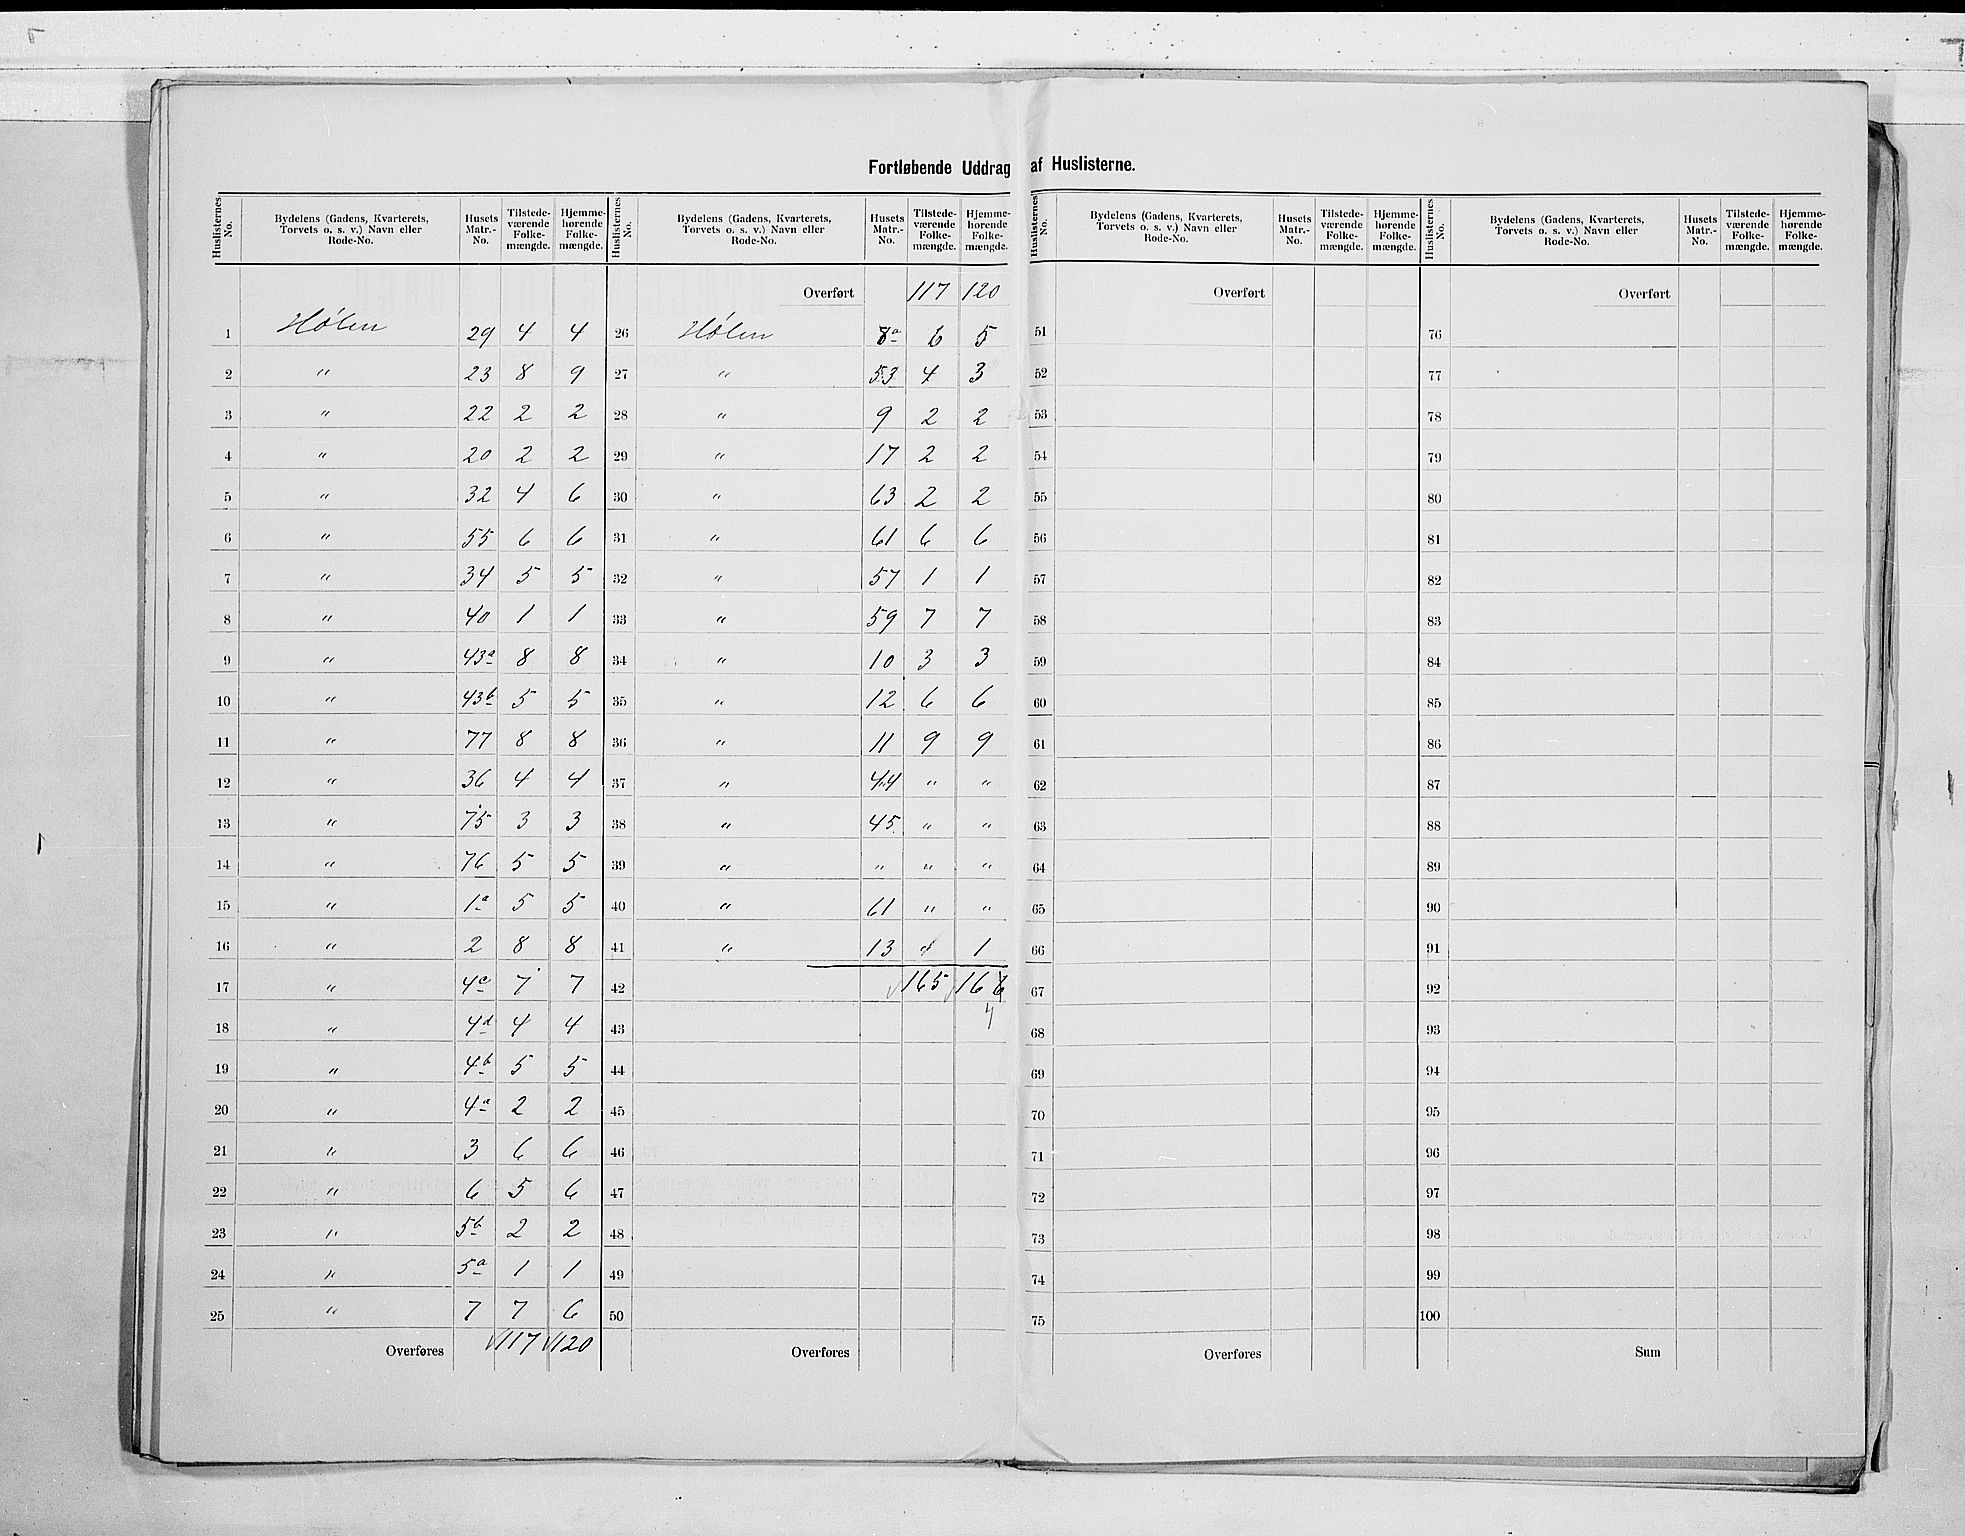 Fortløbende Uddrag af Huslisterne.
Huslisternes No. | Bydelens (Gadens, Kvarterets, Torvets o. s. v.) Navn eller Rode-No. | Husets Matr.-No. | Tilstedeværende Folkemængde. | Hjemmehørende Folkemængde.
1 Hølen 29 4 4
2 " 23 8 9
3 " 22 2 2
4 " 20 2 2
5 " 32 4 6
6 " 55 6 6
7 " 34 5 5
8 " 40 1 1
9 " 43a 8 8
10 " 43b 5 5
11 " 77 8 8
12 " 36 4 4
13 " 75 3 3
14 " 76 5 5
15 " 1a 5 5
16 " 2 8 8
17 " 4c 7 7
18 " 4d 4 4
19 " 4b 5 5
20 " 4a 2 2
21 " 3 6 6
22 " 6 5 6
23 " 5b 2 2
24 " 5a 1 1
25 " 7 7 6
Overføres 117 120
Huslisternes No. | Bydelens (Gadens, Kvarterets, Torvets o. s. v.) Navn eller Rode-No. | Husets Matr.-No. | Tilstedeværende Folkemængde. | Hjemmehørende Folkemængde.
Overført 117 120
26 Hølen 8a 6 5
27 " 53 4 3
28 " 9 2 2
29 " 17 2 2
30 " 63 2 2
31 " 61 6 6
32 " 57 1 1
33 " 59 7 7
34 " 10 3 3
35 " 12 6 6
36 " 11 9 9
37 " 44 " "
38 " 45 " "
39 " " " "
40 " 61 " "
41 " 13 " 1
42 165
43
44
45
46
47
48
49
50
Overføres
Huslisternes No. | Bydelens (Gadens, Kvarterets, Torvets o. s. v.) Navn eller Rode-No. | Husets Matr.-No. | Tilstedeværende Folkemængde. | Hjemmehørende Folkemængde.
Overført
51
52
53
54
55
56
57
58
59
60
61
62
63
64
65
66
67
68
69
70
71
72
73
74
75
Overføres
Huslisternes No. | Bydelens (Gadens, Kvarterets, Torvets o. s. v.) Navn eller Rode-No. | Husets Matr.-No. | Tilstedeværende Folkemængde. | Hjemmehørende Folkemængde.
Overført
76
77
78
79
80
81
82
83
84
85
86
87
88
89
90
91
92
93
94
95
96
97
98
99
100
Sum